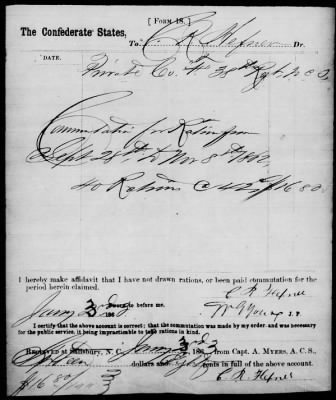 [FORM 18.]
The Confederate States,
To C. R. Hefner Dr.
DATE.
Private Co. 38th Regt N.C.
Commutation for Rations from
Sept 28th to Nov 8th 1862,
40 Rations @ 42 $16 80
I hereby make affidavit that I have not drawn rations, or been paid commutation for the
period herein claimed.
C R Hefner
before me.
Jany 3rd 186 3
J. P.
I certify that the above account is correct; that the commutation was made by my order, and was necessary
for the public service, it being impracticable to take rations in kind.
RECEIVED at Salisbury, N. C., Jany 3rd 186 3 from Capt. A. MYERS, A. C. S.,
Sixteen dollars and 80 cents in full of the above account.
$16 80/100
C. R. Hefner